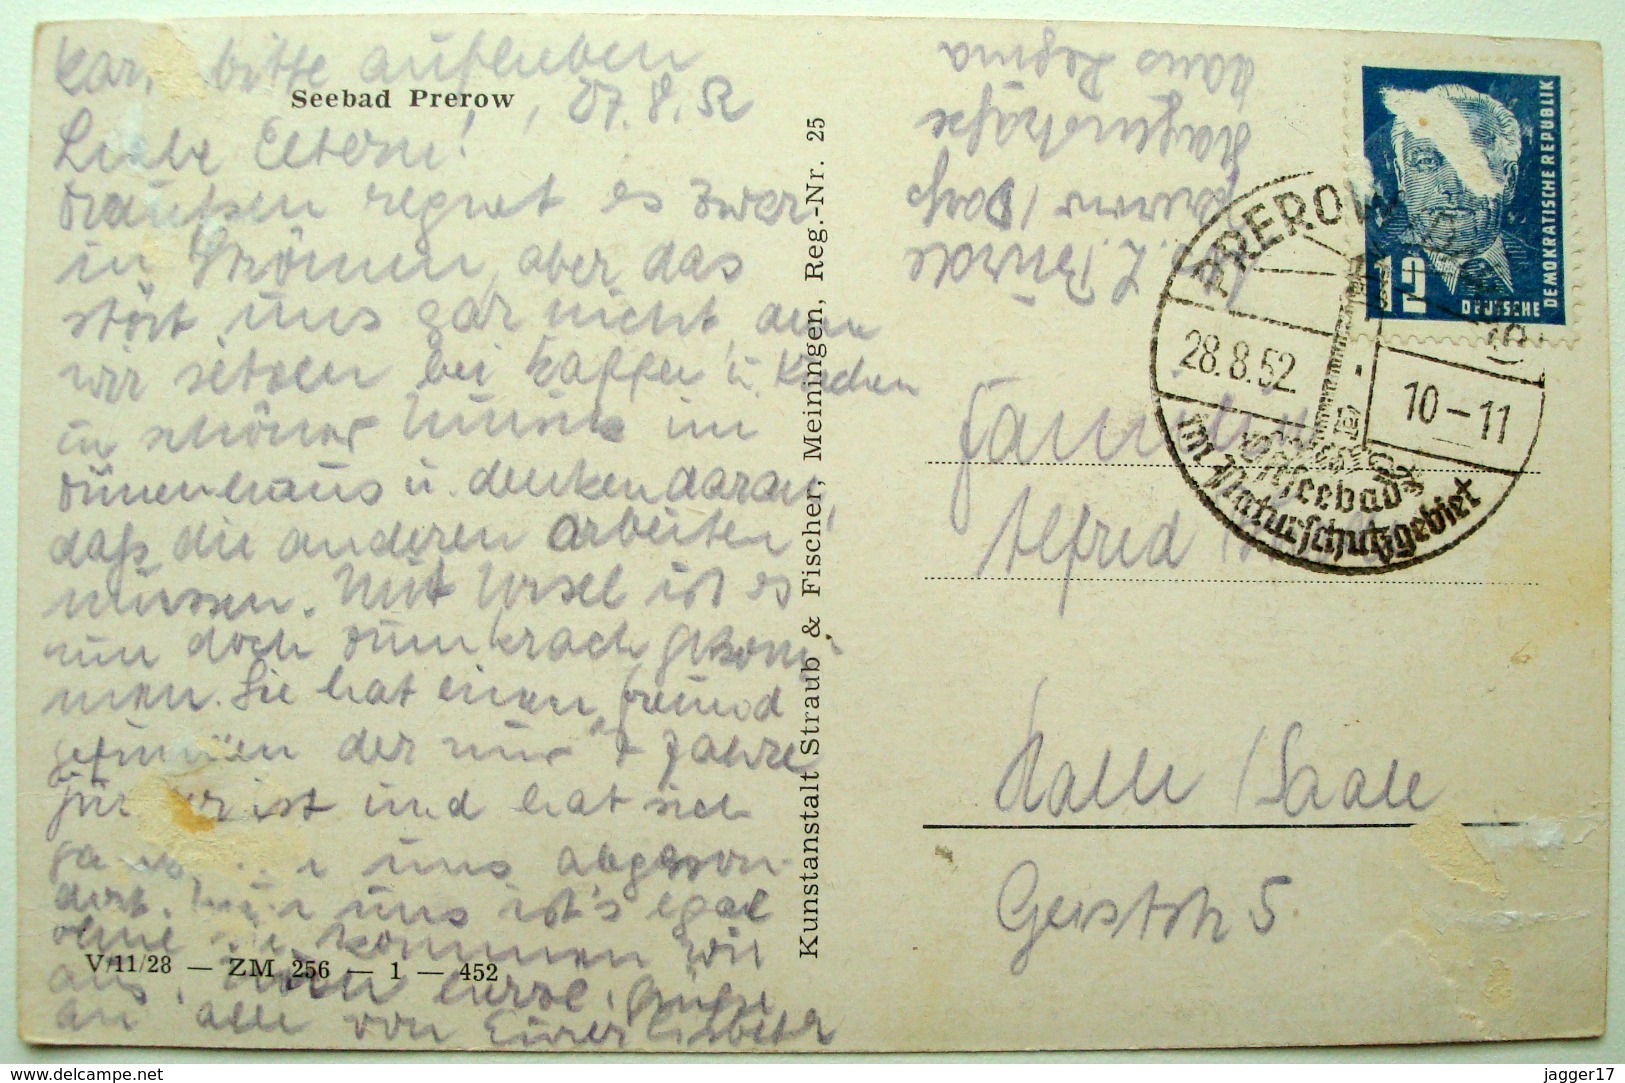 bitte aufheben
Seebad Prerow
27.8.52
Liebe Eltern!
draußen regnet es zwar
in Strömen, aber das
stört uns gar nicht, denn
wir sitzen bei Kaffee u. Kuchen
in schöner Musik im
Dünenhaus u. denken daran,
daß die anderen arbeiten
müssen. Mit Ursel ist es
nun doch zum krach gekom-
men. Sie hat einen Freund
gefunden der nur Jahre
jünger ist und hat sich
uns abgeson-
dert. uns ist's egal
ohne sie kommen wir
aus. herzl. Grüße
an alle von Eurer Elisabeth
V/11/28 — ZM 256 — 1 — 452
Kunstanstalt Straub & Fischer, Meiningen, Reg.-Nr. 25
Haus Regina
Hagenstraße
Prerow / Darß
DEUTSCHE
DEMOKRATISCHE REPUBLIK
12
PREROW
28.8.52
10-11
Ostseebad
im Naturschutzgebiet
Familie
Alfred
Halle / Saale
Geiststr 5
delcampe.net
jagger17